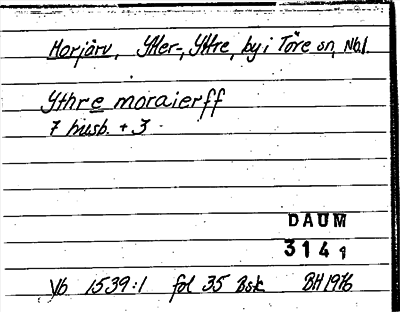 Morjärv, Ytter-, Yttre, by i Töre sn, Nbl.
Ythre moraierff
7 husb. + 3
DAUM
3141
Vb 1539:1 fol 35 Bsk BH 1976